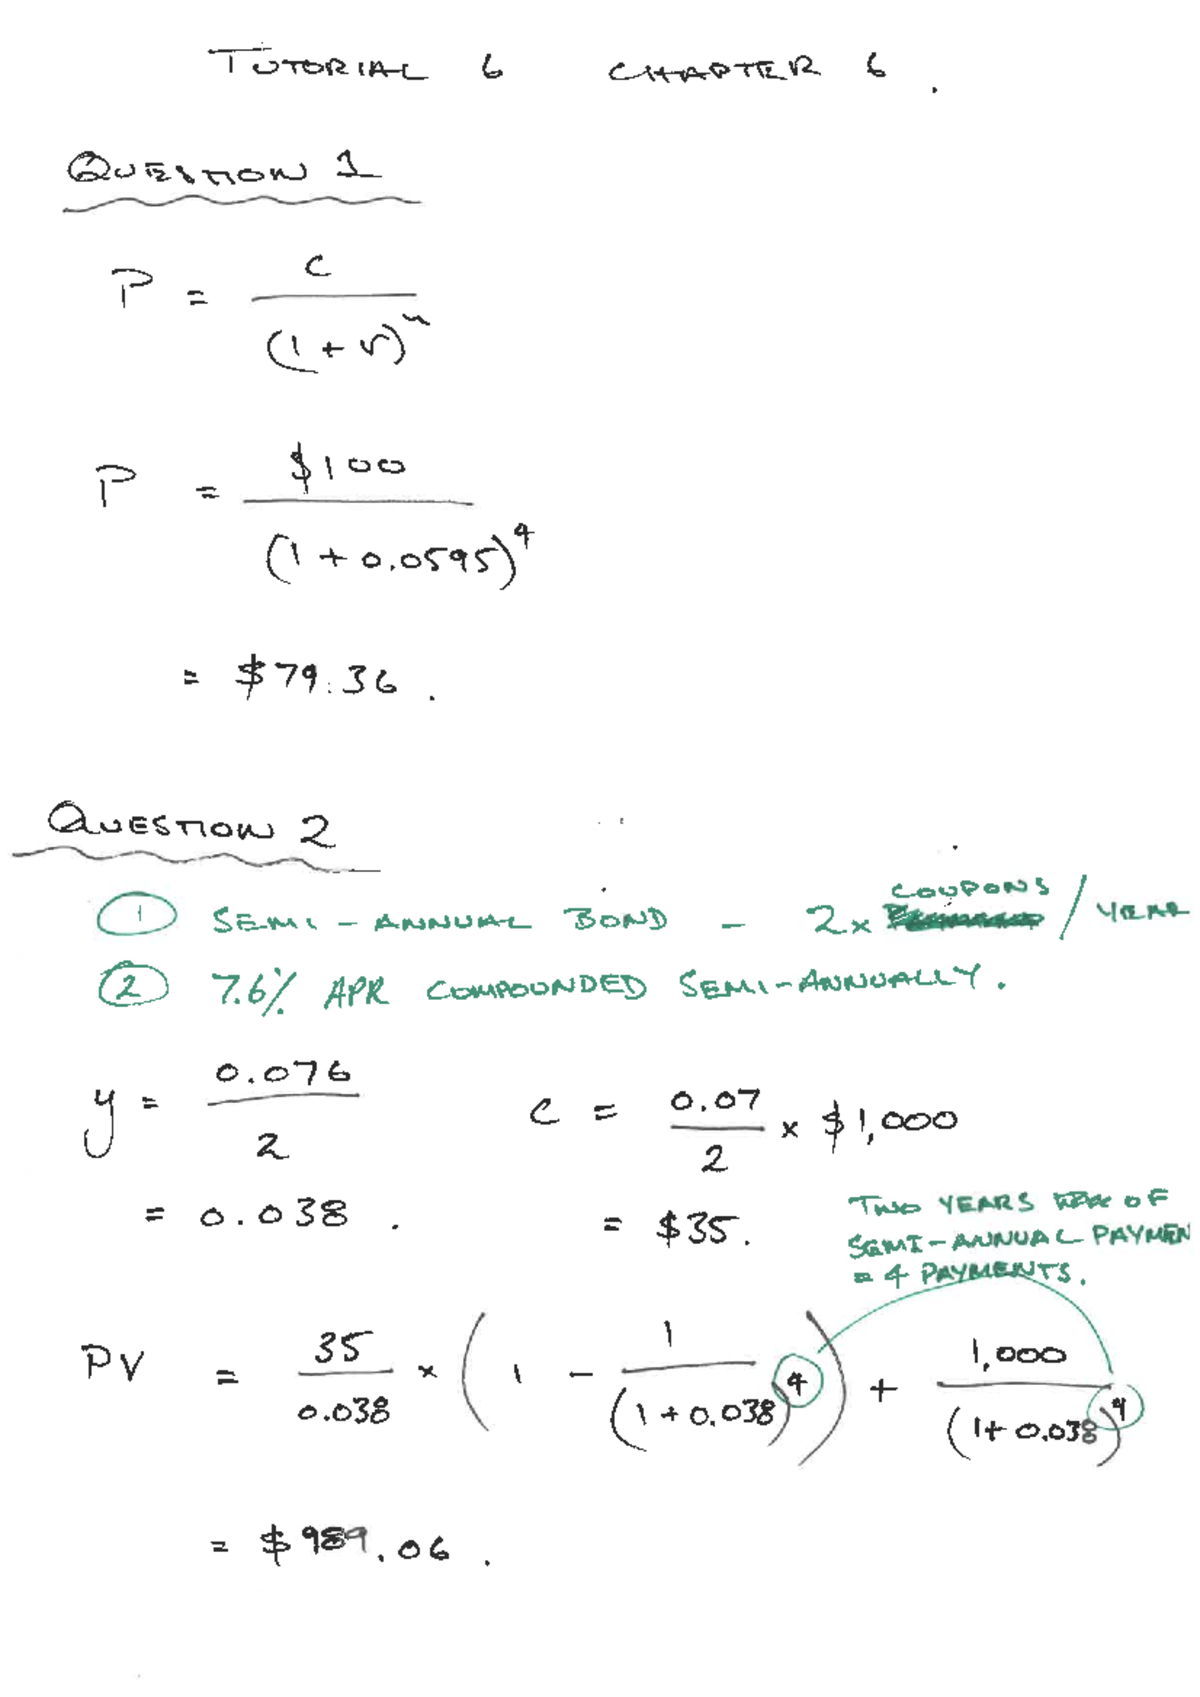 TUTORIAL 6 CHAPTER 6.
QUESTION 1
P = c / (1 + r)^n
P = $100 / (1 + 0.0595)^4
= $79.36.
QUESTION 2
① SEMI-ANNUAL BOND - 2x COUPONS / YEAR
② 7.6% APR COMPOUNDED SEMI-ANNUALLY.
y = 0.076 / 2 c = 0.07 / 2 × $1,000
= 0.038. = $35.
TWO YEARS OF
SEMI-ANNUAL PAYMEN
= 4 PAYMENTS.
PV = 35 / 0.038 × (1 - 1 / (1 + 0.038)^4) + 1,000 / (1 + 0.038)^4
= $989.06.